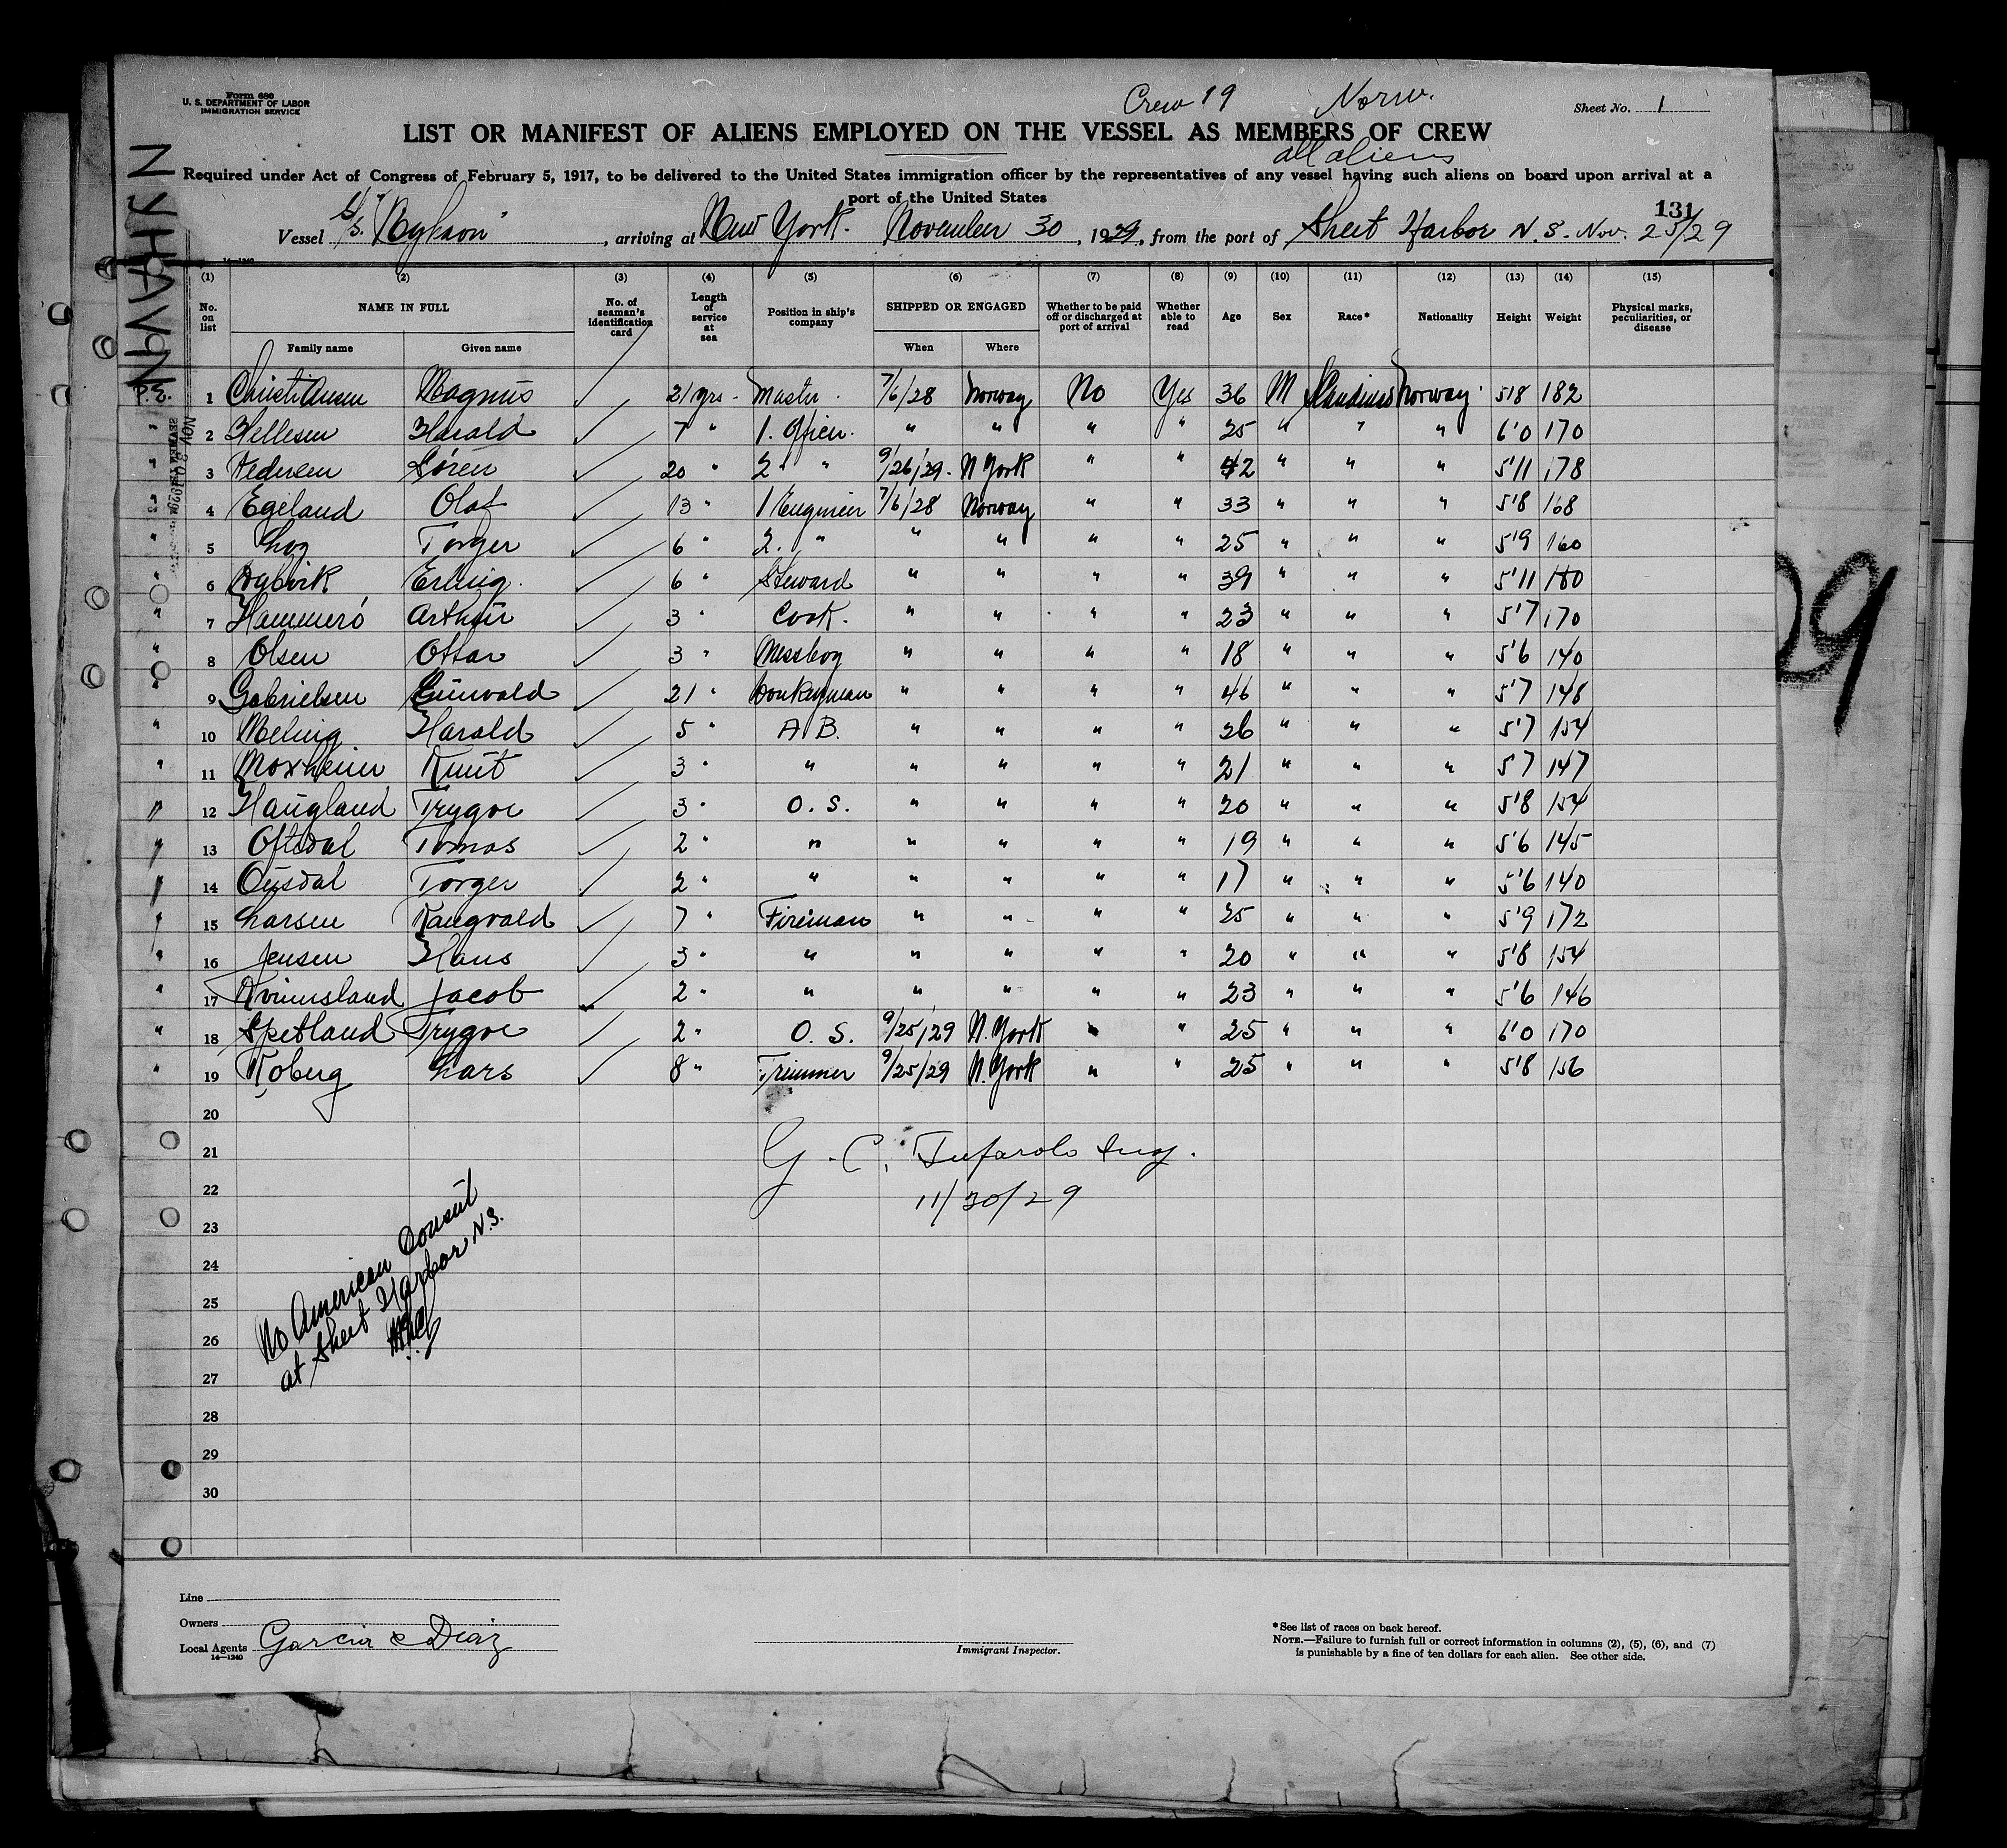 Form 680
U. S. DEPARTMENT OF LABOR
IMMIGRATION SERVICE
Crew 19 Norw.
Sheet No. 1
LIST OR MANIFEST OF ALIENS EMPLOYED ON THE VESSEL AS MEMBERS OF CREW
all aliens
Required under Act of Congress of February 5, 1917, to be delivered to the United States immigration officer by the representatives of any vessel having such aliens on board upon arrival at a
port of the United States
131
Vessel S/S. "Nyhavn", arriving at New York. November 30, 1929, from the port of Sheet Harbor N. S. Nov. 25/29
NYHAVN
14—1240
(1) (2) (3) (4) (5) (6) (7) (8) (9) (10) (11) (12) (13) (14) (15)
No. on list NAME IN FULL No. of seaman's identification card Length of service at sea Position in ship's company SHIPPED OR ENGAGED Whether to be paid off or discharged at port of arrival Whether able to read Age Sex Race* Nationality Height Weight Physical marks, peculiarities, or disease
Family name Given name When Where
P.E. 1 Christiansen Magnus 21 yrs - Master. 7/6/28 Norway No Yes 36 M Norway 5'8 182
" 2 Hellesen Harald 7 " 1. Officer. " " " " 25 " " " 6'0 170
" 3 Pedersen Sören 20 " 2 " " 9/26/29. N York " " 42 " " " 5'11 178
" 4 Egeland Olaf 13 " 1 Engineer 7/6/28 Norway " " 33 " " " 5'8 168
" 5 Log Torger 6 " 2. " " " " " 25 " " " 5'9 160
" 6 Dybvik Erling. 6 " Steward " " " " 39 " " " 5'11 180
" 7 Hammerö Arthur 3 " Cook. " " " " 23 " " " 5'7 170
" 8 Olsen Ottar 3 " Messboy " " " " 18 " " " 5'6 140
" 9 Gabrielsen Gunvald 21 " Donkeyman " " " " 46 " " " 5'7 148
" 10 Meling Harald 5 " A B. " " " " 26 " " " 5'7 154
" 11 Moxheim Knut 3 " " " " " " 21 " " " 5'7 147
" 12 Haugland Trygve 3 " O. S. " " " " 20 " " " 5'8 154
" 13 Oftedal Tomas 2 " " " " " " 19 " " " 5'6 145
" 14 Ousdal Torger 2 " " " " " " 17 " " " 5'6 140
" 15 Larsen Rangvald 7 " Fireman " " " " 25 " " " 5'9 172
" 16 Jensen Hans 3 " " " " " " 20 " " " 5'8 154
" 17 Kvinesland Jacob 2 " " " " " " 23 " " " 5'6 146
" 18 Spetland Trygve 2 " O. S. 9/25/29 N. York " " 25 " " " 6'0 170
" 19 Roberg Lars 8 " Trimmer 9/25/29 N. York " " 25 " " " 5'8 156
20
21
22
23
24
25
26
27
28
29
30
G. C. Insp.
11/30/29
No American Consul
at Sheet Harbor N.S.
29
Line
Owners
Local Agents Garcia & Diaz
14—1240
Immigrant Inspector.
*See list of races on back hereof.
NOTE.—Failure to furnish full or correct information in columns (2), (5), (6), and (7)
is punishable by a fine of ten dollars for each alien. See other side.